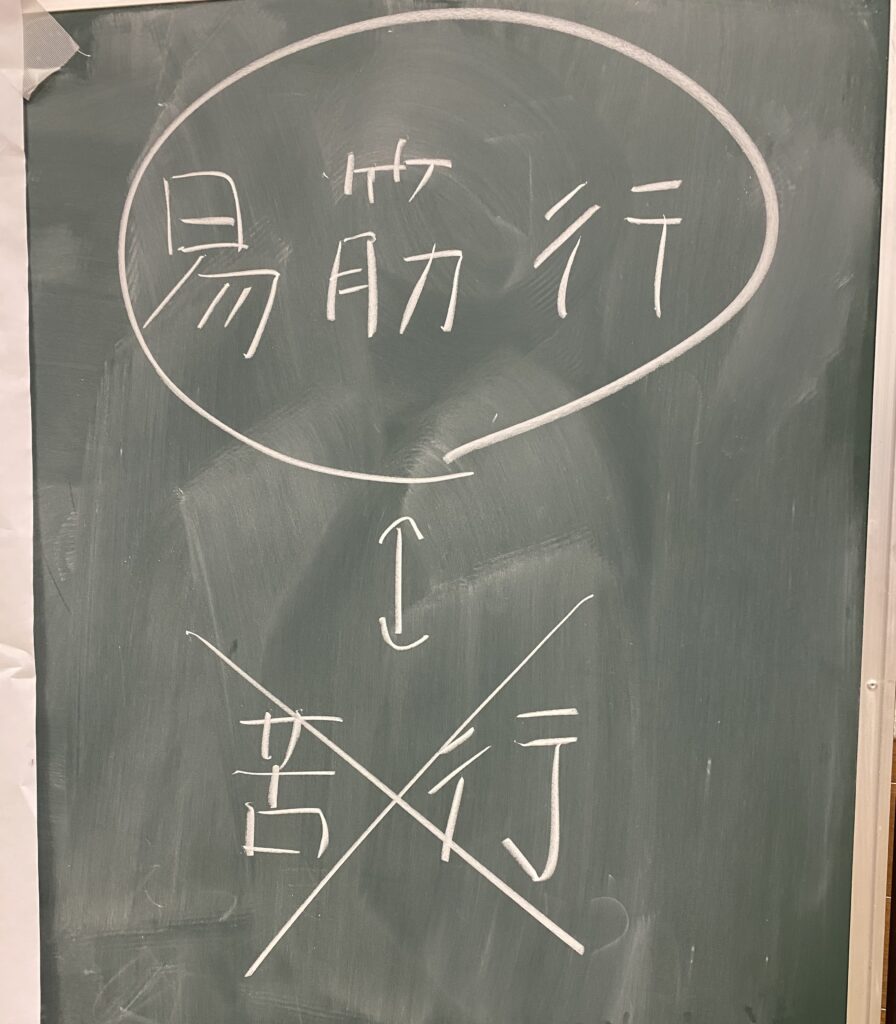 易筋行
苦行